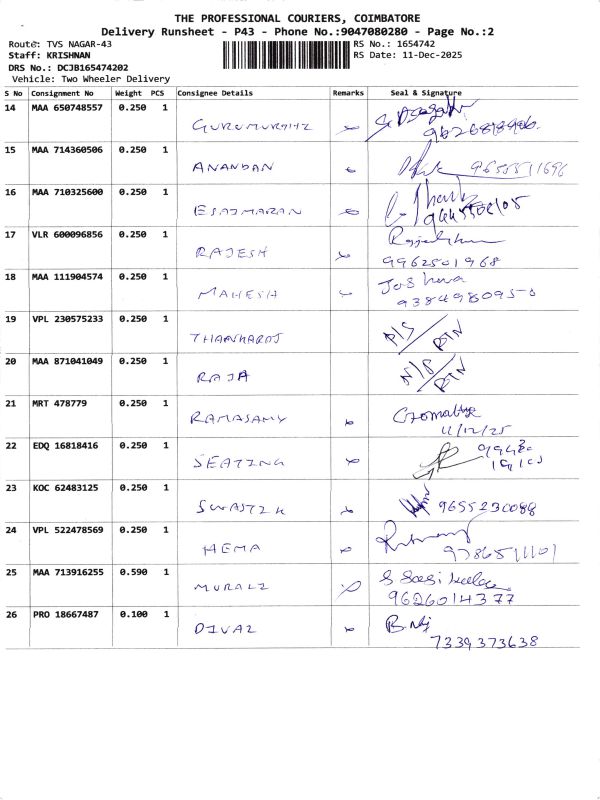 THE PROFESSIONAL COURIERS, COIMBATORE
Delivery Runsheet - P43 - Phone No.:9047080280 - Page No.:2
Route: TVS NAGAR-43 RS No.: 1654742
Staff: KRISHNAN RS Date: 11-Dec-2025
DRS No.: DCJB165474202
Vehicle: Two Wheeler Delivery
S No Consignment No Weight PCS Consignee Details Remarks Seal & Signature
14 MAA 650748557 0.250 1
GURUMURTHI
15 MAA 714360506 0.250 1
ANANDAN 9655511696
16 MAA 710325600 0.250 1
ESAIMARAN
17 VLR 600096856 0.250 1
RAJESH
9962501968
18 MAA 111904574 0.250 1
MAHESH
9384980950
19 VPL 230575233 0.250 1
P/S
RTN
20 MAA 871041049 0.250 1
RAJA N/S
RTN
21 MRT 478779 0.250 1
RAMASAMY
11/12/25
22 EDQ 16818416 0.250 1
SEATING
23 KOC 62483125 0.250 1
SWASTIK 9655230088
24 VPL 522478569 0.250 1
HEMA 9786511101
25 MAA 713916255 0.590 1
MURALI 9626014377
26 PRO 18667487 0.100 1
DIVAI
7339373638